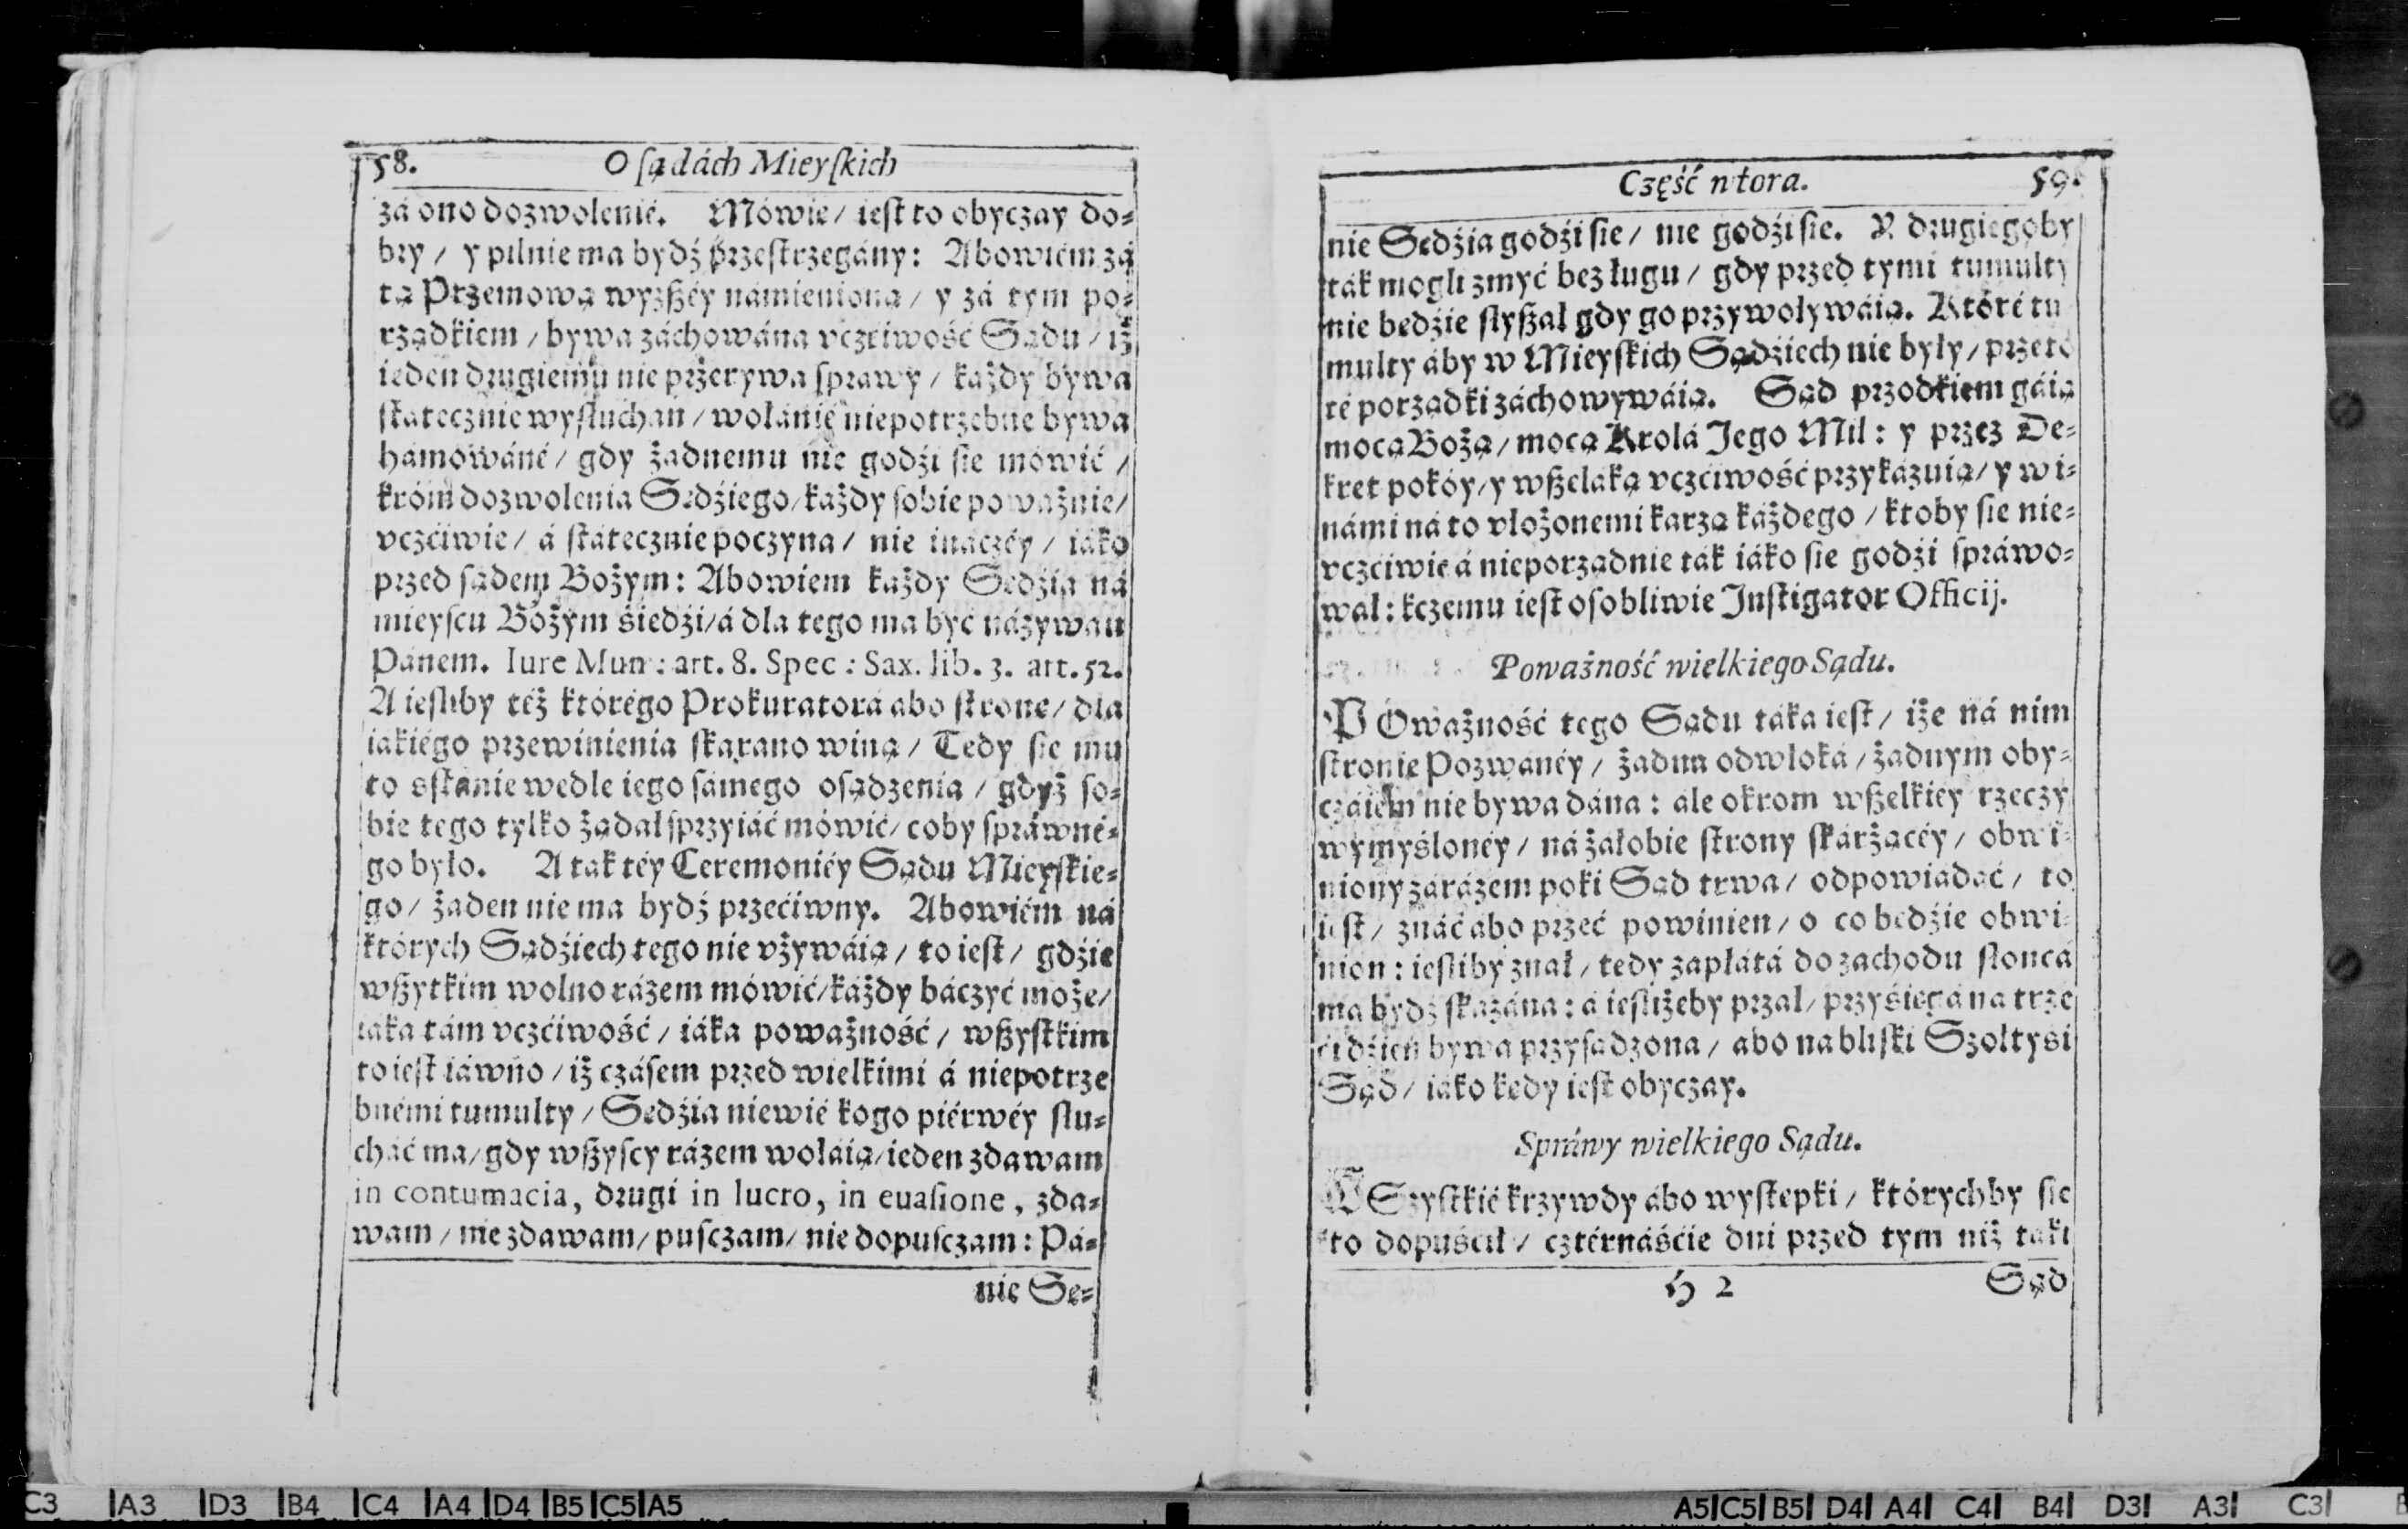 58. O ſądách Mieyſkich
zá ono dozwolenié. Mówię/ ieſt to obyczay do-
bry/ y pilnie ma bydź przeſtrzegány: Abowiém zá
tą Przemową wyżßéy námienioną/ y zá tym po-
rządkiem/ bywa záchowána vczciwość Sądu/ iż
ieden drugiemu nie przerywa ſprawy/ każdy bywa
ſtátecznie wyſłuchan/ wołánié niepotrzebne bywa
hámowáné/ gdy żadnemu nie godźi ſie mówić/
króm dozwolenia Sędźiego/ każdy ſobie poważnie/
vczćiwie/ á ſtátecznie poczyna/ nie ináczéy/ iáko
przed ſądem Bożym: Abowiem każdy Sędźia ná
mieyſcu Bożym śiedźi/ á dla tego ma być názywan
Pánem. Iure Mun: art. 8. Spec: Sax. lib. 3. art. 52.
A ieſliby téż którégo Prokuratorá abo ſtronę/ dla
iakiégo przewinienia ſkarano winą/ Tedy ſie mu
to sſtánie wedle iego ſámego oſądzenia/ gdyż ſo-
bie tego tylko żądał ſprzyiáć mówić/ coby ſpráwné-
go było. A tak téy Ceremoniéy Sądu Mieyſkie-
go/ żaden nie ma bydź przećiwny. Abowiém ná
których Sądźiech tego nie vżywáią/ to ieſt/ gdźie
wßytkim wolno rázem mówić/ káżdy báczyć może/
iáka tám vczćiwość/ iáka poważność/ wßyſtkim
to ieſt iáwno/ iż czáſem przed wielkimi á niepotrze
bnémi tumulty/ Sędźia niewié kogo piérwéy ſłu-
cháć ma/ gdy wßyſcy rázem wołáią/ ieden zdawam
in contumacia, drugi in lucro, in euaſione, zda-
wam/ nie zdawam/ puſczam/ nie dopuſczam: Pá-
nie Sę-
Część wtora. 59.
nie Sędźia godźi ſie/ nie godźi ſie. Y drugiegoby
ták mogli zmyć bez ługu/ gdy przed tymi tumulty
nie będźie ſłyßał gdy go przywoływáią. Któré tu
multy áby w Mieyſkich Sądźiech nie były/ przeto
té porządki záchowywáią. Sąd przodkiem gáią
mocą Bożą/ mocą Krolá Jego Mil: y przez De-
kret pokóy/ y wßelaką vczćiwość przykázuią/ y wi-
námi ná to vłożonemi karzą káżdego/ ktoby ſie nie-
vczćiwie á nieporządnie ták iáko ſie godźi ſpráwo-
wał: kczemu ieſt oſobliwie Jnſtigator Officij.
Poważność wielkiego Sądu.
POważność tego Sądu táka ieſt/ iże ná nim
ſtronie Pozwanéy/ żadna odwłoká/ żadnym oby-
czáiem nie bywa dána: ále okrom wßelkiéy rzeczy
wymyślonéy/ ná żałobie ſtrony ſkárżącéy/ obwi-
niony zárázem poki Sąd trwa/ odpowiadáć/ to
ieſt/ znáć ábo przeć powinien/ o co będźie obwi-
nion: ieſliby znał/ tedy zapłátá do zachodu słońcá
ma bydź ſkazána: á ieſliżeby przał/ przyśięgá na trze
ći dźień bywa przyſądzona/ abo na bliſki Szołtyśi
Sąd/ iáko kędy ieſt obyczay.
Spráwy wielkiego Sądu.
WSzyſtkié krzywdy ábo wyſtępki/ którychby ſie
kto dopuśćił/ cztérnáśćie dni przed tym niż taki
H 2 Sąd